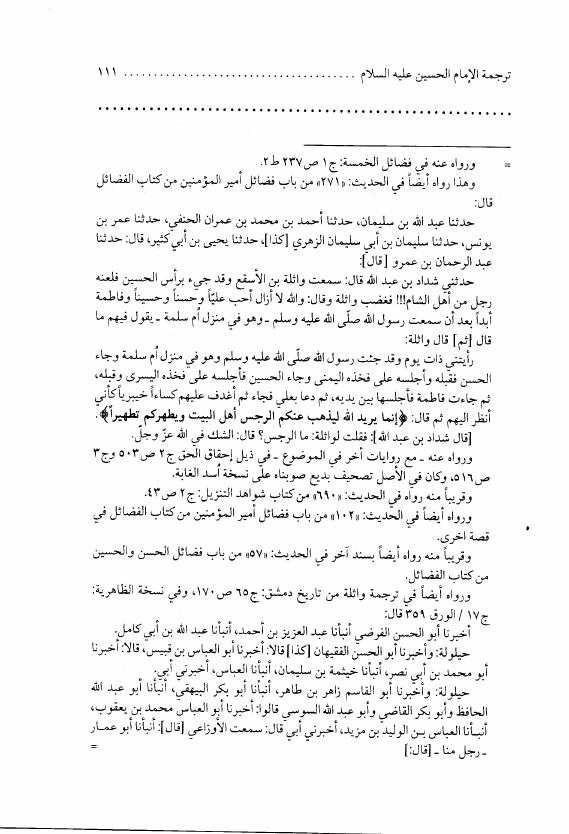 ترجمة الإمام الحسين عليه السلام ....................................... ١١١
= ورواه عنه في فضائل الخمسة: ج١ ص٢٣٧ ط٢.
وهذا رواه أيضاً في الحديث: «٢٧١» من باب فضائل أمير المؤمنين من كتاب الفضائل
قال:
حدثنا عبد الله بن سليمان، حدثنا أحمد بن محمد بن عمران الحنفي، حدثنا عمر بن
يونس، حدثنا سليمان بن أبي سليمان الزهري [كذا]، حدثنا يحيى بن أبي كثير، قال: حدثنا
عبد الرحمان بن عمرو [قال]:
حدثني شداد بن عبد الله قال: سمعت واثلة بن الأسقع وقد جيء برأس الحسين فلعنه
رجل من أهل الشام!!! فغضب واثلة وقال: والله لا أزال أحب عليّاً وحسناً وحسيناً وفاطمة
أبداً بعد أن سمعت رسول الله صلّى الله عليه وسلم ـ وهو في منزل أم سلمة ـ يقول فيهم ما
قال [ثم] قال واثلة:
رأيتني ذات يوم وقد جئت رسول الله صلّى الله عليه وسلم وهو في منزل أم سلمة وجاء
الحسن فقبله وأجلسه على فخذه اليمنى وجاء الحسين فأجلسه على فخذه اليسرى وقبله،
ثم جاءت فاطمة فأجلسها بين يديه، ثم دعا بعلي فجاء ثم أغدف عليهم كساءاً خيبرياً كأني
أنظر اليهم ثم قال: ﴿إنما يريد الله ليذهب عنكم الرجس أهل البيت ويطهركم تطهيراً﴾.
[قال شداد بن عبد الله]: فقلت لواثلة: ما الرجس؟ قال: الشك في الله عزّ وجلّ.
ورواه عنه ـ مع روايات أخر في الموضوع ـ في ذيل إحقاق الحق ج٢ ص٥٠٣ وج٣
ص٥١٦، وكان في الأصل تصحيف بديع صوبناه على نسخة أسد الغابة.
وقريباً منه رواه في الحديث: «٦٩٠» من كتاب شواهد التنزيل: ج٢ ص٤٣.
ورواه أيضاً في الحديث: «١٠٢» من باب فضائل أمير المؤمنين من كتاب الفضائل في
قصة اخرى.
وقريباً منه رواه أيضاً بسند آخر في الحديث: «٥٧» من باب فضائل الحسن والحسين
من كتاب الفضائل.
ورواه أيضاً في ترجمة واثلة من تاريخ دمشق: ج٦٥ ص١٧٠، وفي نسخة الظاهرية:
ج١٧ / الورق ٣٥٩ قال:
أخبرنا أبو الحسن الفرضي أنبأنا عبد العزيز بن أحمد، أنبأنا عبد الله بن أبي كامل.
حيلولة: وأخبرنا أبو الحسن الفقيهان [كذا] قالا: أخبرنا أبو العباس بن قبيس، قالا: أخبرنا
أبو محمد بن أبي نصر، أنبأنا خيثمة بن سليمان، أنبأنا العباس، أخبرني أبي.
حيلولة: وأخبرنا أبو القاسم زاهر بن طاهر، أنبأنا أبو بكر البيهقي، أنبأنا أبو عبد الله
الحافظ وأبو بكر القاضي وأبو عبد الله السوسي قالوا: أخبرنا أبو العباس محمد بن يعقوب،
أنبـأنا العباس بـن الوليد بن مزيد، أخبرني أبي قال: سمعت الأوزاعي [قال]: أنبأنا أبو عمـار
ـ رجل منا ـ [قال:] =